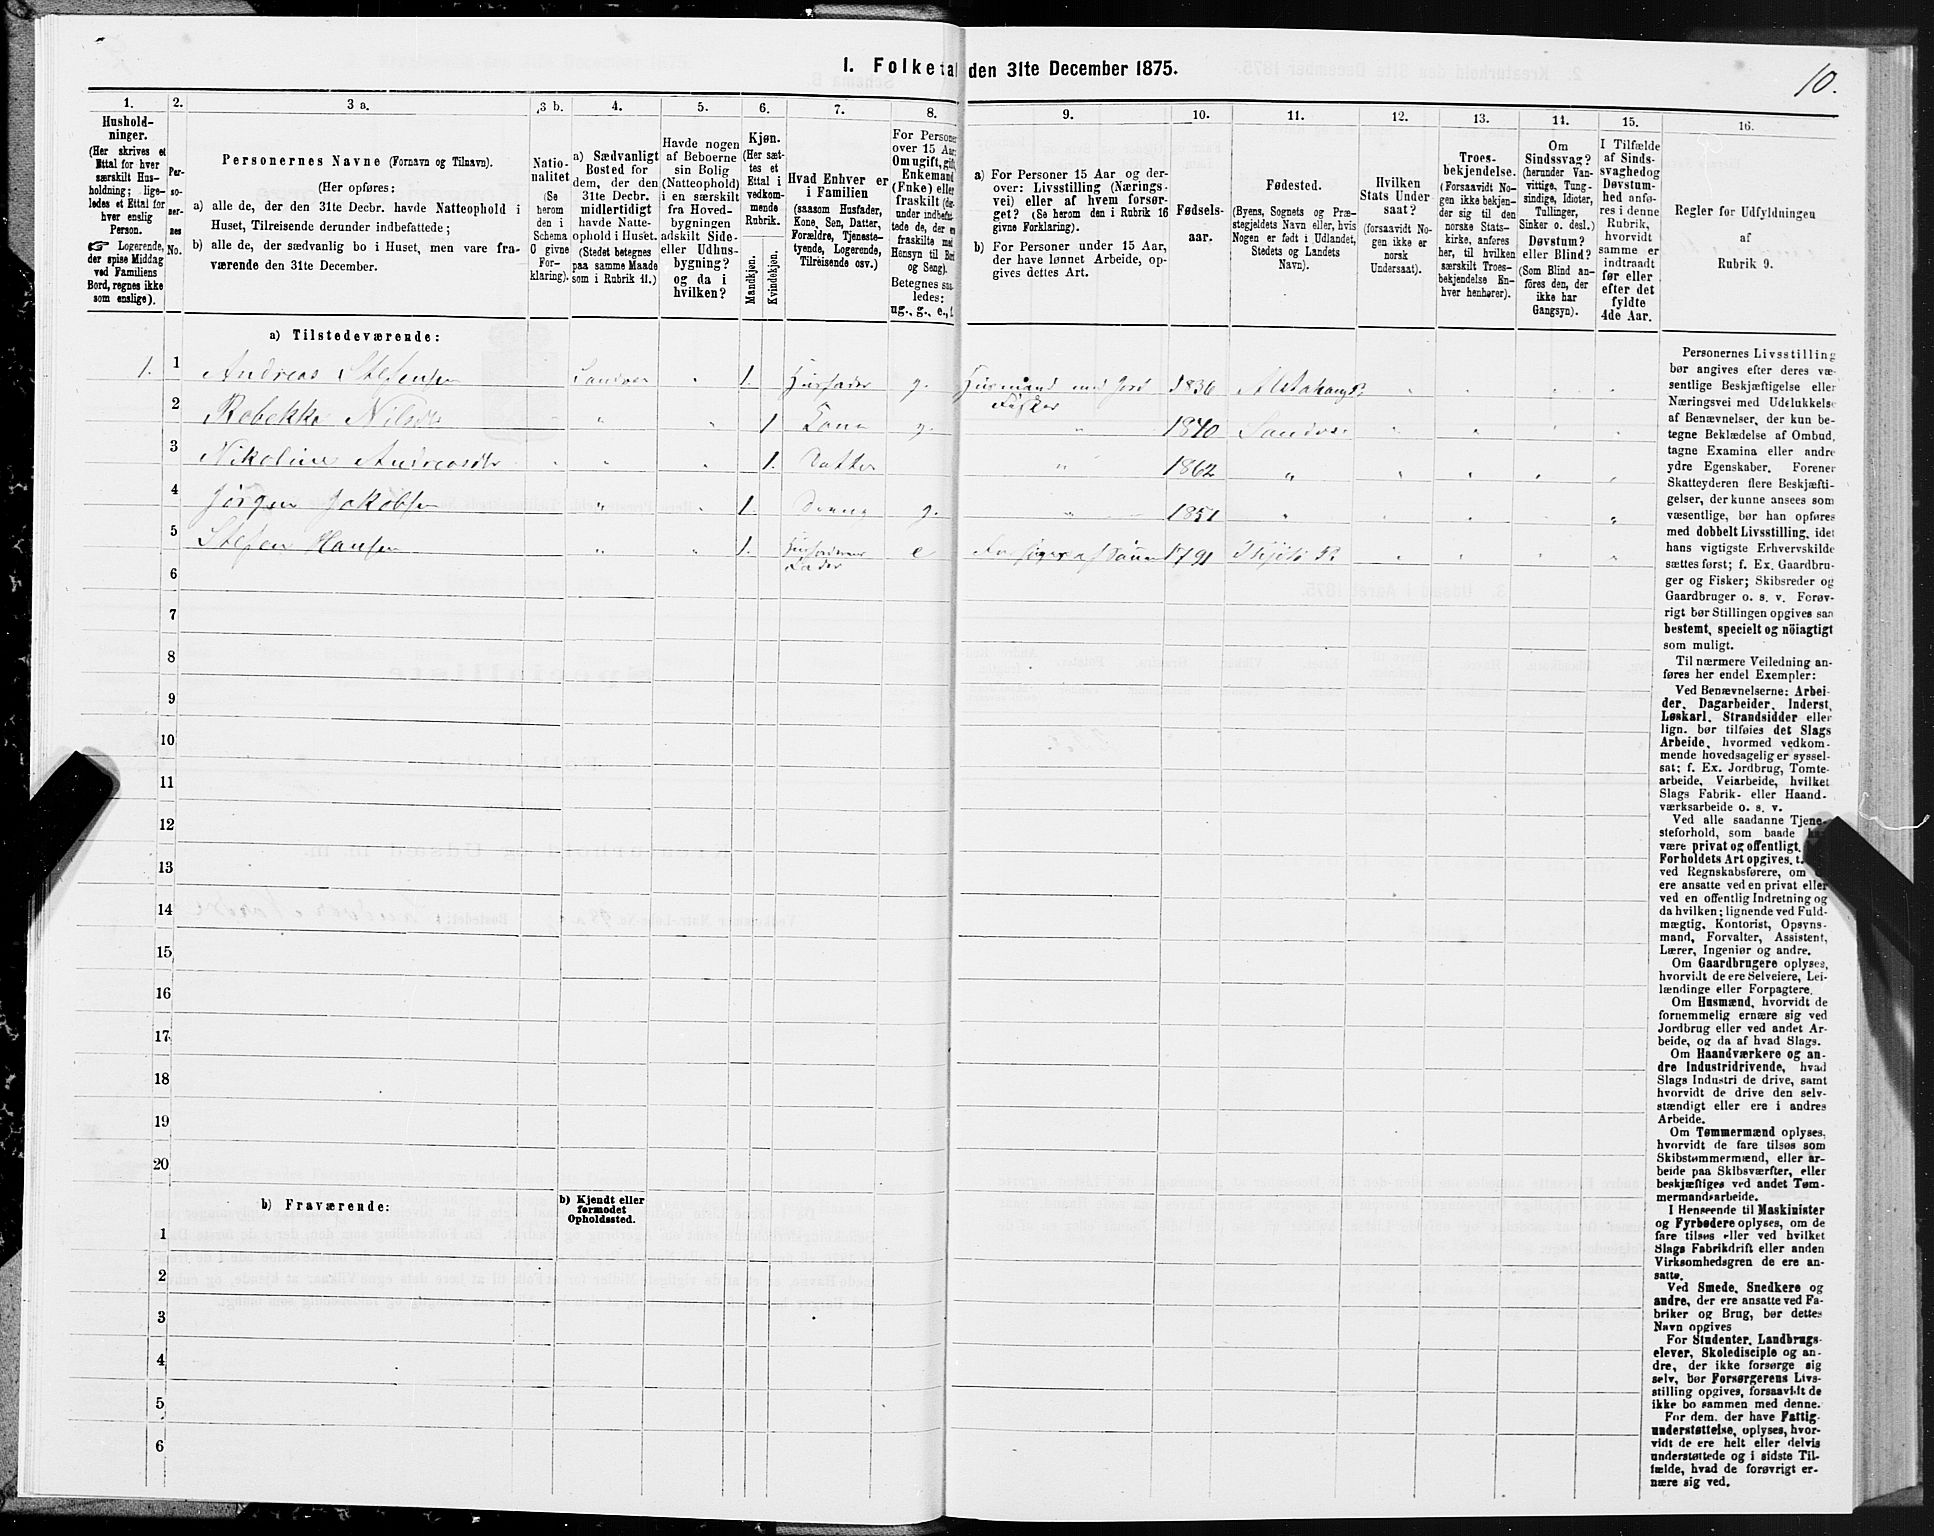 1. Folketal den 31te December 1875.
10.
1. 2. 3 a. 3 b. 4. 5. 6. 7. 8. 9. 10. 11. 12. 13. 14. 15. 16.
Hushold-
ninger.
(Her skrives et
Ettal for hver
særskilt Hus-
holdning; lige-
ledes et Ettal for
hver enslig
Person.
☞ Logerende,
der spise Middag
ved Familiens
Bord, regnes ikke
som enslige).
Per-
so-
ner-
nes
No.
Personernes Navne (Fornavn og Tilnavn).
(Her opføres:
a) alle de, der den 31te Decbr. havde Natteophold i
Huset, Tilreisende derunder indbefattede;
b) alle de, der sædvanlig bo i Huset, men vare fra-
værende den 31te December.
Natio-
nalitet
(Se
herom
den i
Schema
O givne
For-
klaring).
a) Sædvanligt
Bosted for
dem, der den
31te Decbr.
midlertidigt
havde Natte-
ophold i Huset.
(Stedet betegnes
paa samme Maade
som i Rubrik 11.)
Havde nogen
af Beboerne
sin Bolig
(Natteophold)
i en særskilt
fra Hoved-
bygningen
adskilt Side-
eller Udhus-
bygning?
og da i
hvilken?
Kjøn.
(Her sæt-
tes et
Ettal i
vedkom-
mende
Rubrik.
Mandkjøn.
Kvindekjøn.
Hvad Enhver er
i Familien
(saasom Husfader,
Kone, Søn, Datter,
Forældre, Tjeneste-
tyende, Logerende,
Tilreisende osv.)
For Personer
over 15 Aar:
Om ugift, gift,
Enkemand
(Enke) eller
fraskilt (der-
under indbefat-
tede de, der ere
fraskilte med
Hensyn til Bord
og Seng).
Betegnes saa-
ledes:
ug., g., e., f.
a) For Personer 15 Aar og der-
over: Livsstilling (Nærings-
vei) eller af hvem forsør-
get? (Se herom den i Rubrik 16
givne Forklaring).
b) For Personer under 15 Aar,
der have lønnet Arbeide, op-
gives dettes Art.
Fødsels-
aar.
Fødested.
(Byens, Sognets og Præ-
stegjeldets Navn eller, hvis
Nogen er født i Udlandet,
Stedets og Landets
Navn).
Hvilken
Stats Under-
saat?
(forsaavidt No-
gen ikke er
norsk
Undersaat).
Troes-
bekjendelse.
(Forsaavidt No-
gen ikke bekjen-
der sig til den
norske Stats-
kirke, anføres
her, til hvilken
særskilt Troes-
bekjendelse En-
hver henhører).
Om
Sindssvag?
(herunder Van-
vittige, Tung-
sindige, Idioter,
Tullinger,
Sinker o. desl.)
Døvstum?
eller Blind?
(Som Blind an-
føres den, der
ikke har
Gangsyn).
I Tilfælde
af Sinds-
svaghed og
Døvstum-
hed anfø-
res i denne
Rubrik,
hvorvidt
samme er
indtraadt
før eller
efter det
fyldte
4de Aar.
Regler for Udfyldningen
af
Rubrik 9.
a) Tilstedeværende:
1. 1 Andreas Stefensen Sandvær " 1. Husfader g. Husmand med Jord 1836 Alstahaug P.
Fisker
2 Rebekka Nilsdtr " " 1 Kone g. " 1840 Sandvær
3 Nikoline Andreasdtr " " 1. Datter " 1862 "
4 Jørgen Jakobsen " " 1. g. " 1851 "
5 Stefen Hansen " " 1. Husfaderens e 1791
Fader
6
7
8
9
10
11
12
13
14
15
16
17
18
19
20
b) Fraværende:
b) Kjendt eller
formodet
Opholdssted.
1
2
3
4
5
6
Personernes Livsstilling
bør angives efter deres væ-
sentlige Beskjæftigelse eller
Næringsvei med Udelukkelse
af Benævnelser, der kun be-
tegne Beklædelse af Ombud,
tagne Examina eller andre
ydre Egenskaber. Forener
Skatteyderen flere Beskjæfti-
gelser, der kunne ansees som
væsentlige, bør han opføres
med dobbelt Livsstilling, idet
hans vigtigste Erhvervskilde
sættes først; f. Ex. Gaardbru-
ger og Fisker; Skibsreder og
Gaardbruger o. s. v. Forøv-
rigt bør Stillingen opgives saa
bestemt, specielt og nöiagtigt
som muligt.
Til nærmere Veiledning an-
føres her endel Exempler:
Ved Benævnelserne: Arbei-
der, Dagarbeider, Inderst,
Løskarl, Strandsidder eller
lign. bør tilføies det Slags
Arbeide, hvormed vedkom-
mende hovedsagelig er syssel-
sat; f. Ex. Jordbrug, Tomte-
arbeide, Veiarbeide, hvilket
Slags Fabrik- eller Haand-
værksarbeide o. s. v.
Ved alle saadanne Tjene-
steforhold, som baade
være privat og offentligt,
Forholdets Art opgives, t.
ved Regnskabsførere, om
ere ansatte ved en privat eller
ved en offentlig Indretning og
da hvilken; lignende ved Fuld-
mægtig, Kontorist, Opsyns-
mand, Forvalter, Assistent,
Lærer, Ingeniør og andre.
Om Gaardbrugere oplyses,
hvorvidt de ere Selveiere, Lei-
lændinge eller Forpagtere.
Om Husmænd, hvorvidt de
fornemmelig ernære sig ved
Jordbrug eller ved andet Ar-
beide, og da af hvad Slags.
Om Haandværkere og an-
dre Industridrivende, hvad
Slags Industri de drive, samt
hvorvidt de drive den selv-
stændigt eller ere i andres
Arbeide.
Om Tømmermænd oplyses,
hvorvidt de fare tilsøs som
Skibstømmermænd, eller ar-
beide paa Skibsværfter, eller
beskjæftiges ved andet Tøm-
mermandsarbeide.
I Henseende til Maskinister
og Fyrbødere oplyses, om de
fare tilsøs eller ved hvilket
Slags Fabrikdrift eller anden
Virksomhedsgren de ere an-
satte.
Ved Smede, Snedkere og
andre, der ere ansatte ved Fa-
briker og Brug, bør dettes
Navn opgives
For Studenter, Landbrugs-
elever, Skoledisciple og an-
dre, der ikke forsørge sig
selv, bør Forsørgerens Livs-
stilling opgives, forsaavidt de
ikke bo sammen med denne.
For dem, der have Fattig-
understøttelse, oplyses, hvor-
vidt de ere helt eller delvis
understøttede og i sidste Til-
fælde, hvad de forøvrigt er-
nære sig ved.